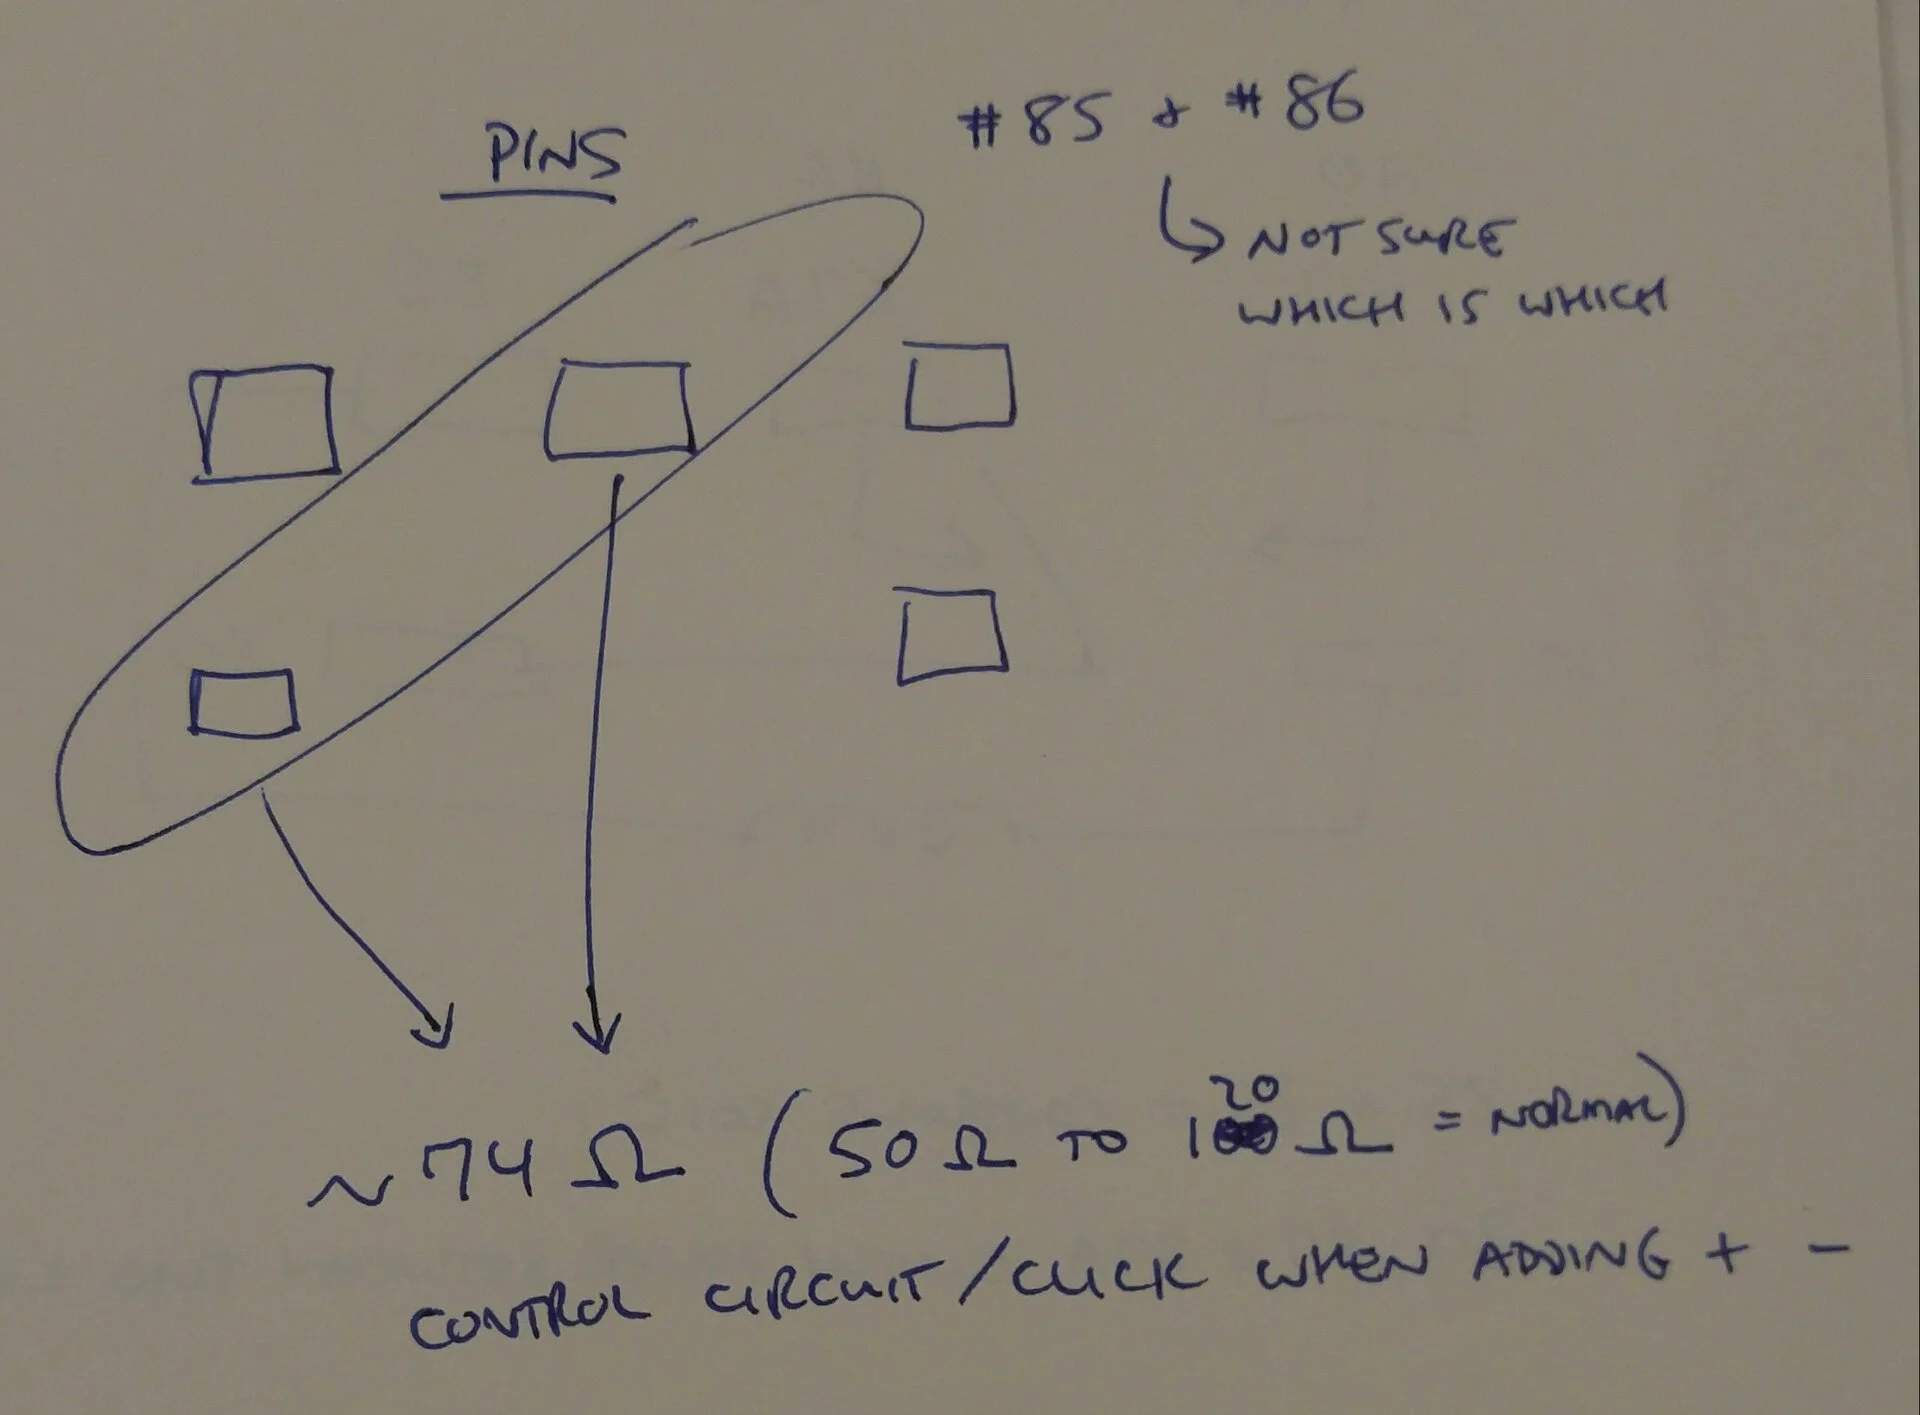 PINS
#85 & #86
NOT SURE
WHICH IS WHICH
~74 Ω (50 Ω TO 120 Ω = NORMAL)
CONTROL CIRCUIT/CLICK WHEN ADDING + -